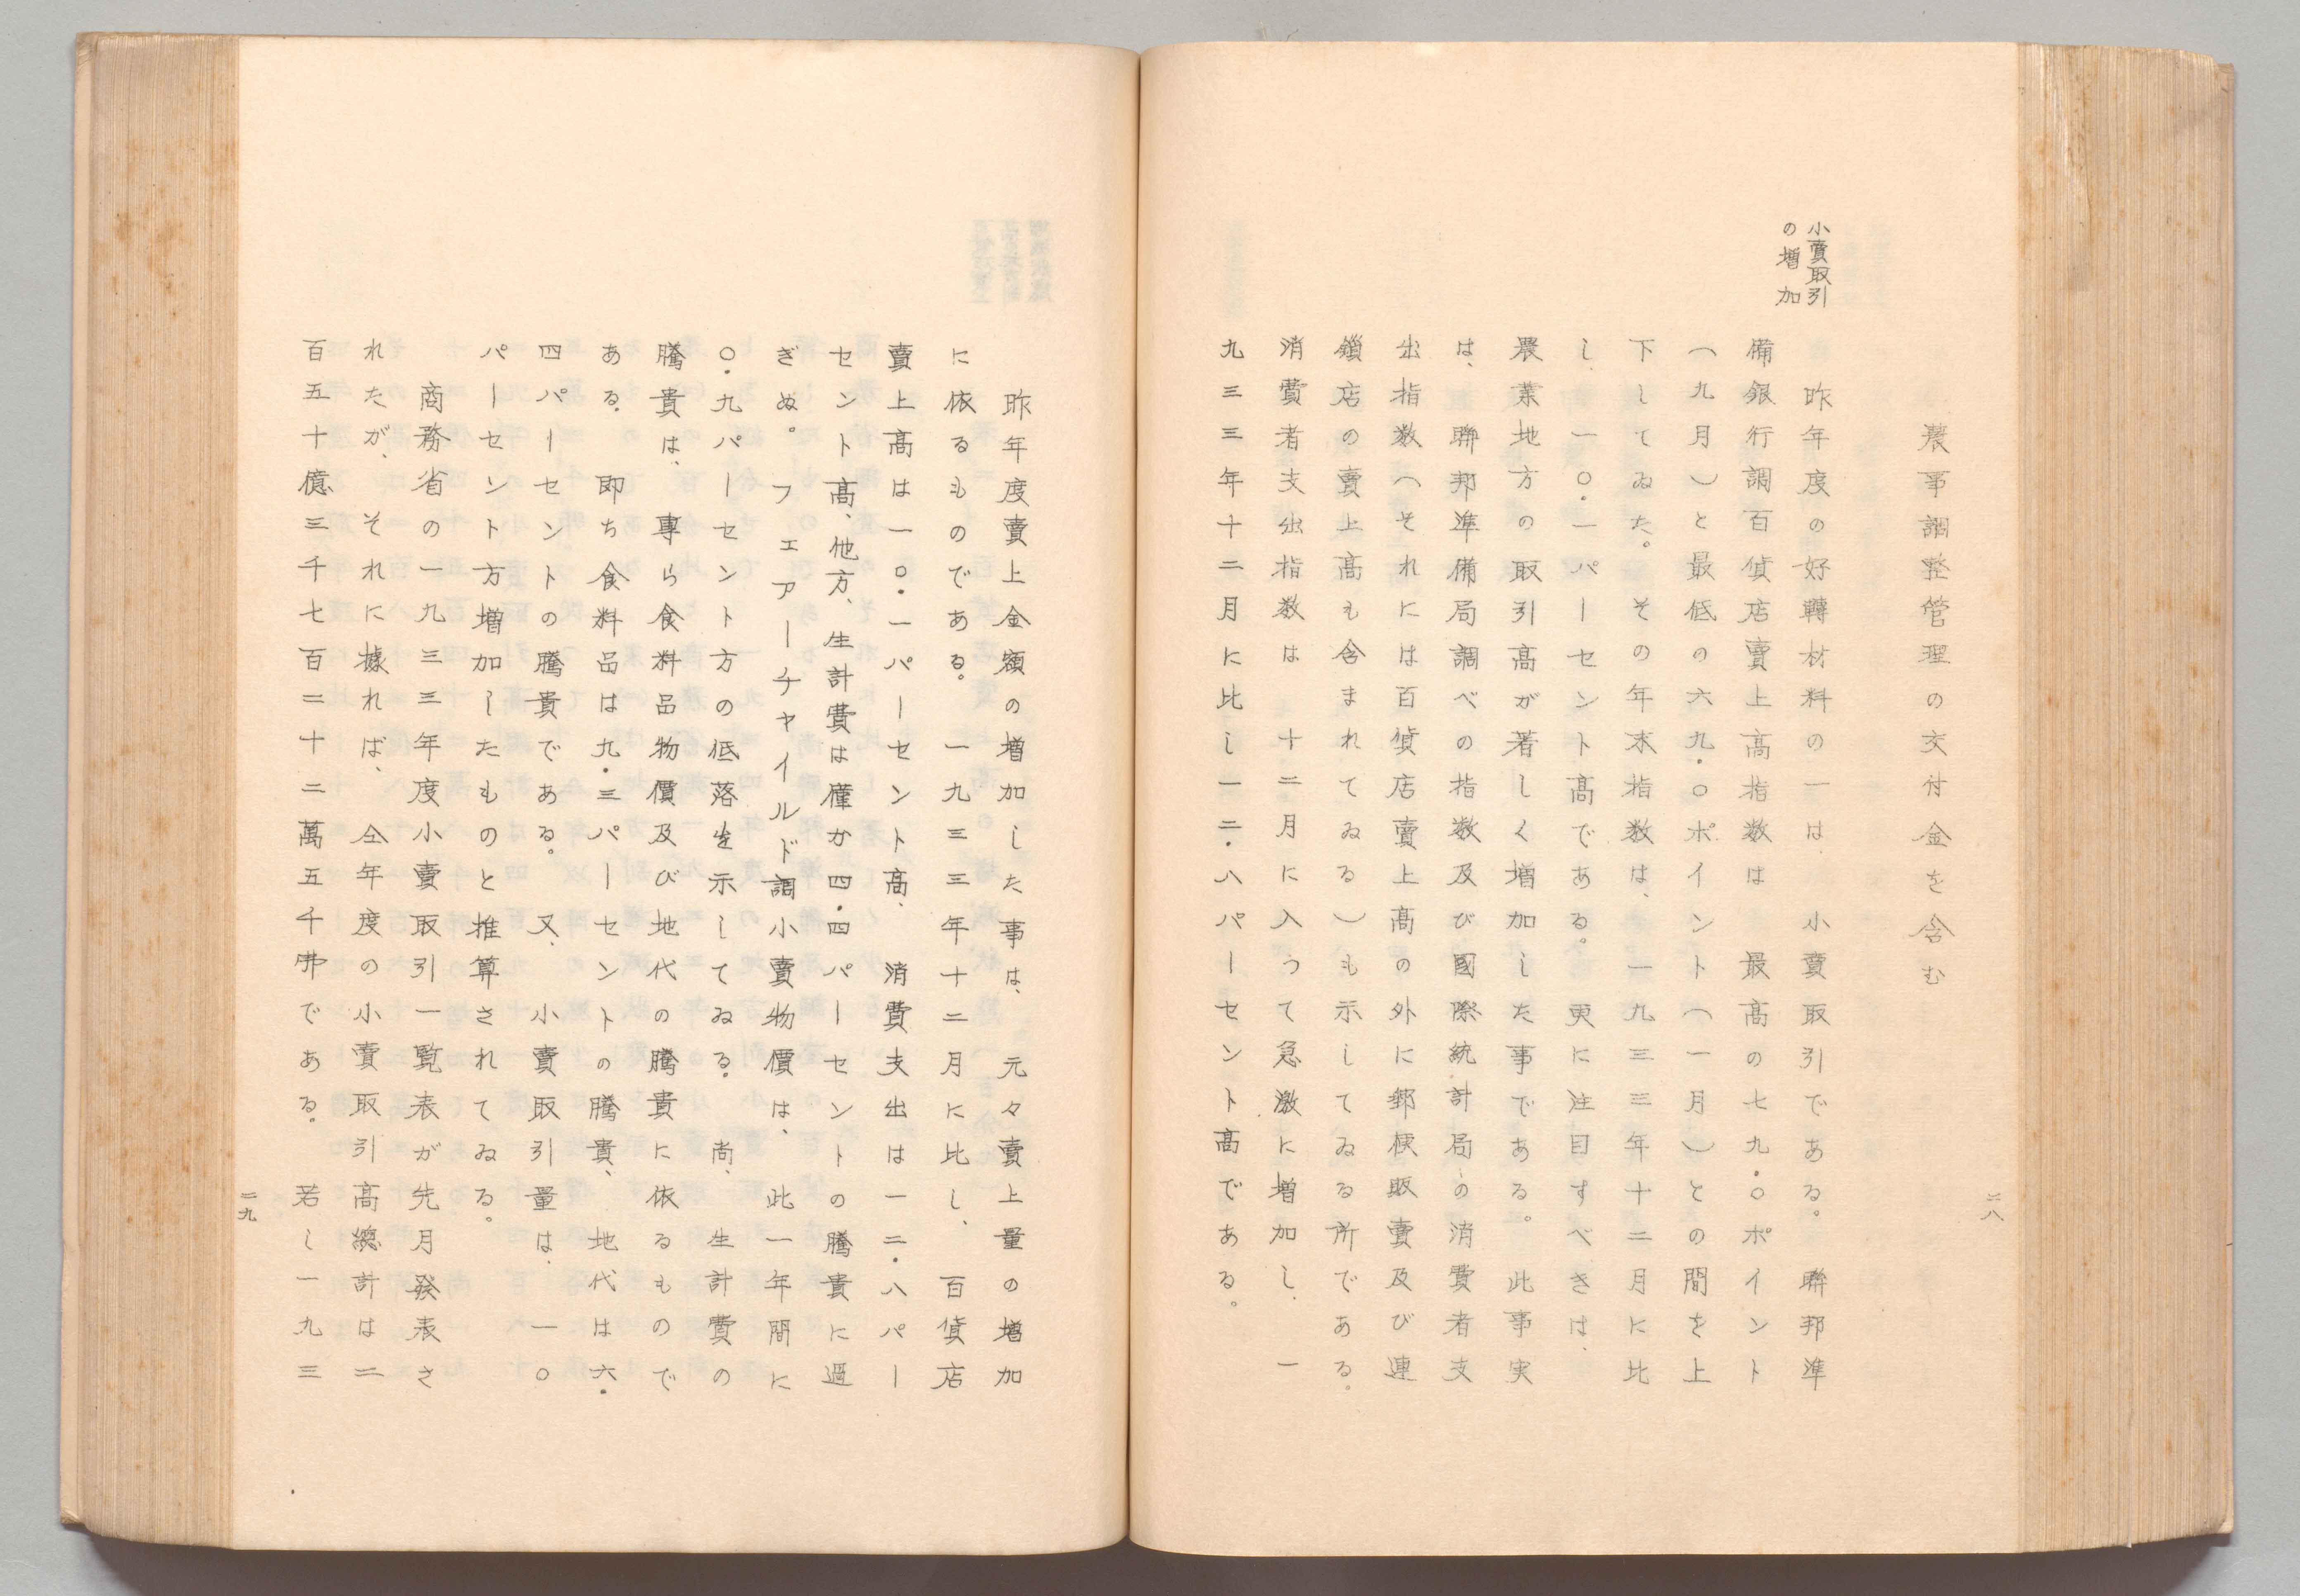 二八
農事調整管理の交付金を含む
小賣取引
の増加
昨年度の好轉材料の一は、小賣取引である。聯邦準
備銀行調百貨店賣上高指数は　最高の七九・〇ポイント
（九月）と最低の六九・〇ポイント（一月）との間を上
下してゐた。その年末指数は、一九三三年十二月に比
し、一〇・一パーセント高である。更に注目すべきは、
農業地方の取引高が著しく増加した事である。此事実
は、聯邦準備局調べの指数及び國際統計局の消費者支
出指数（それには百貨店賣上高の外に郵便販賣及び連
鎖店の賣上高も含まれてゐる）も示してゐる所である。
消費者支出指数は　十二月に入つて急激に増加し、一
九三三年十二月に比し一二・八パーセント高である。
昨年度賣上金額の増加した事は、元々賣上量の増加
に依るものである。一九三三年十二月に比し、百貨店
賣上高は一〇・一パーセント高、消費支出は一二・八パー
セント高、他方、生計費は僅か四・四パーセントの騰貴に過
ぎぬ。フェアーチャイルド調小賣物價は、此一年間に
〇・九パーセント方の低落を示してゐる。尚、生計費の
騰貴は、專ら食料品物價及び地代の騰貴に依るもので
ある。即ち食料品は九・三パーセントの騰貴、地代は六・
四パーセントの騰貴である。又、小賣取引量は、一〇
パーセント方増加したものと推算されてゐる。
商務省の一九三三年度小賣取引一覧表が先月發表さ
れたが、それに據れば、仝年度の小賣取引高總計は二
百五十億三千七百二十二萬五千弗である。若し一九三
二九